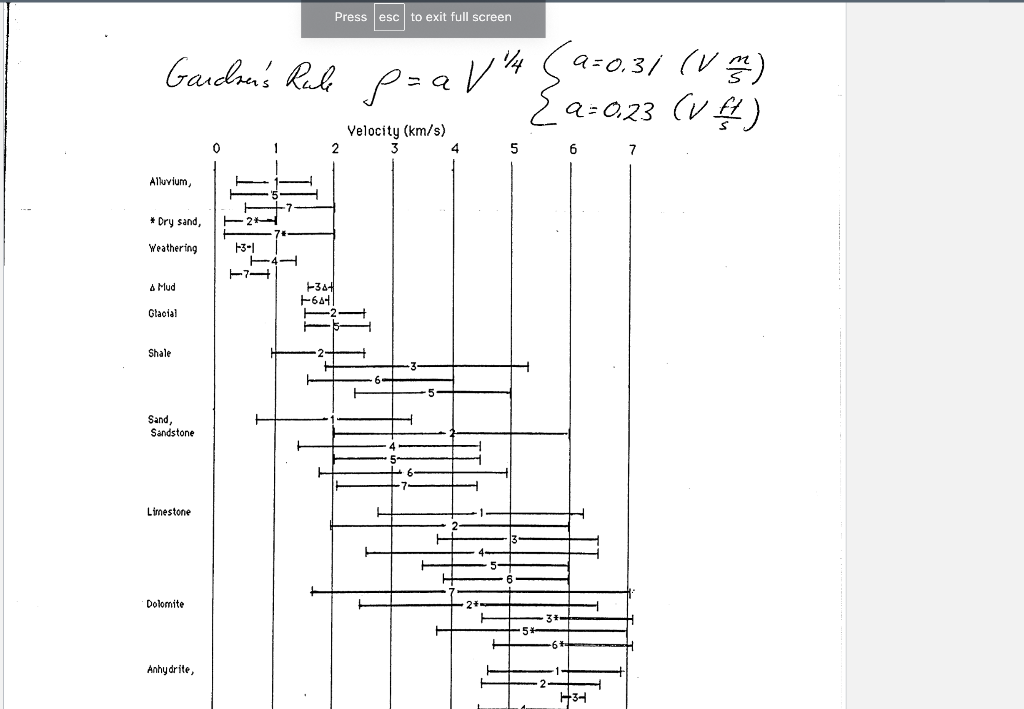 Press esc to exit full screen
Gardner's Rule ρ = a V^1/4 { a=0.31 (V m/s)
{ a=0.23 (V ft/s)
Velocity (km/s)
0 1 2 3 4 5 6 7
Alluvium,
1
5
7
* Dry sand,
2*
7*
Weathering
3
4
7
Δ Mud
3Δ
6Δ
Glacial
2
5
Shale
2
3
6
5
Sand,
1
Sandstone
2
4
5
6
7
Limestone
1
2
3
4
5
6
7
Dolomite
2*
3*
5*
6*
Anhydrite,
1
2
3